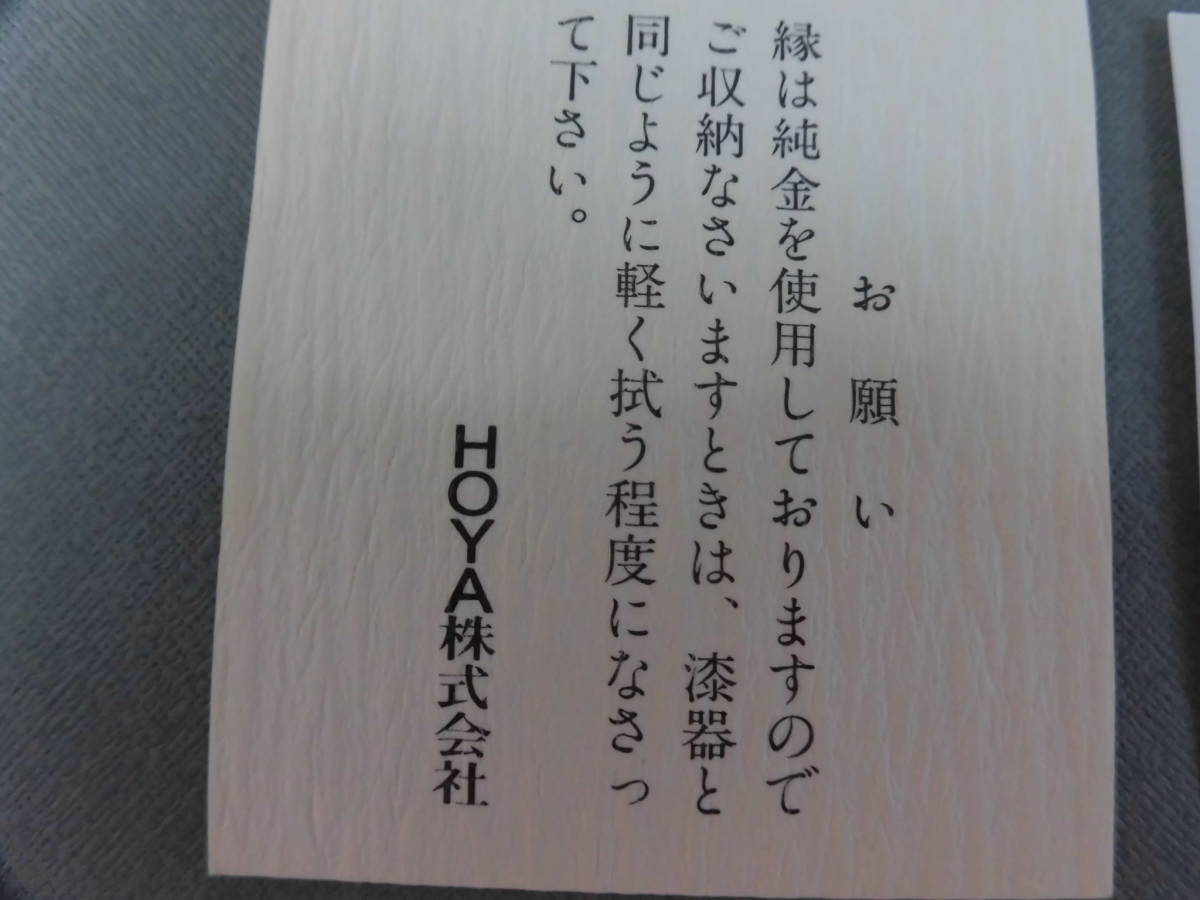 お願い
縁は純金を使用しておりますので
ご収納なさいますときは、漆器と
同じように軽く拭う程度になさっ
て下さい。
HOYA株式会社